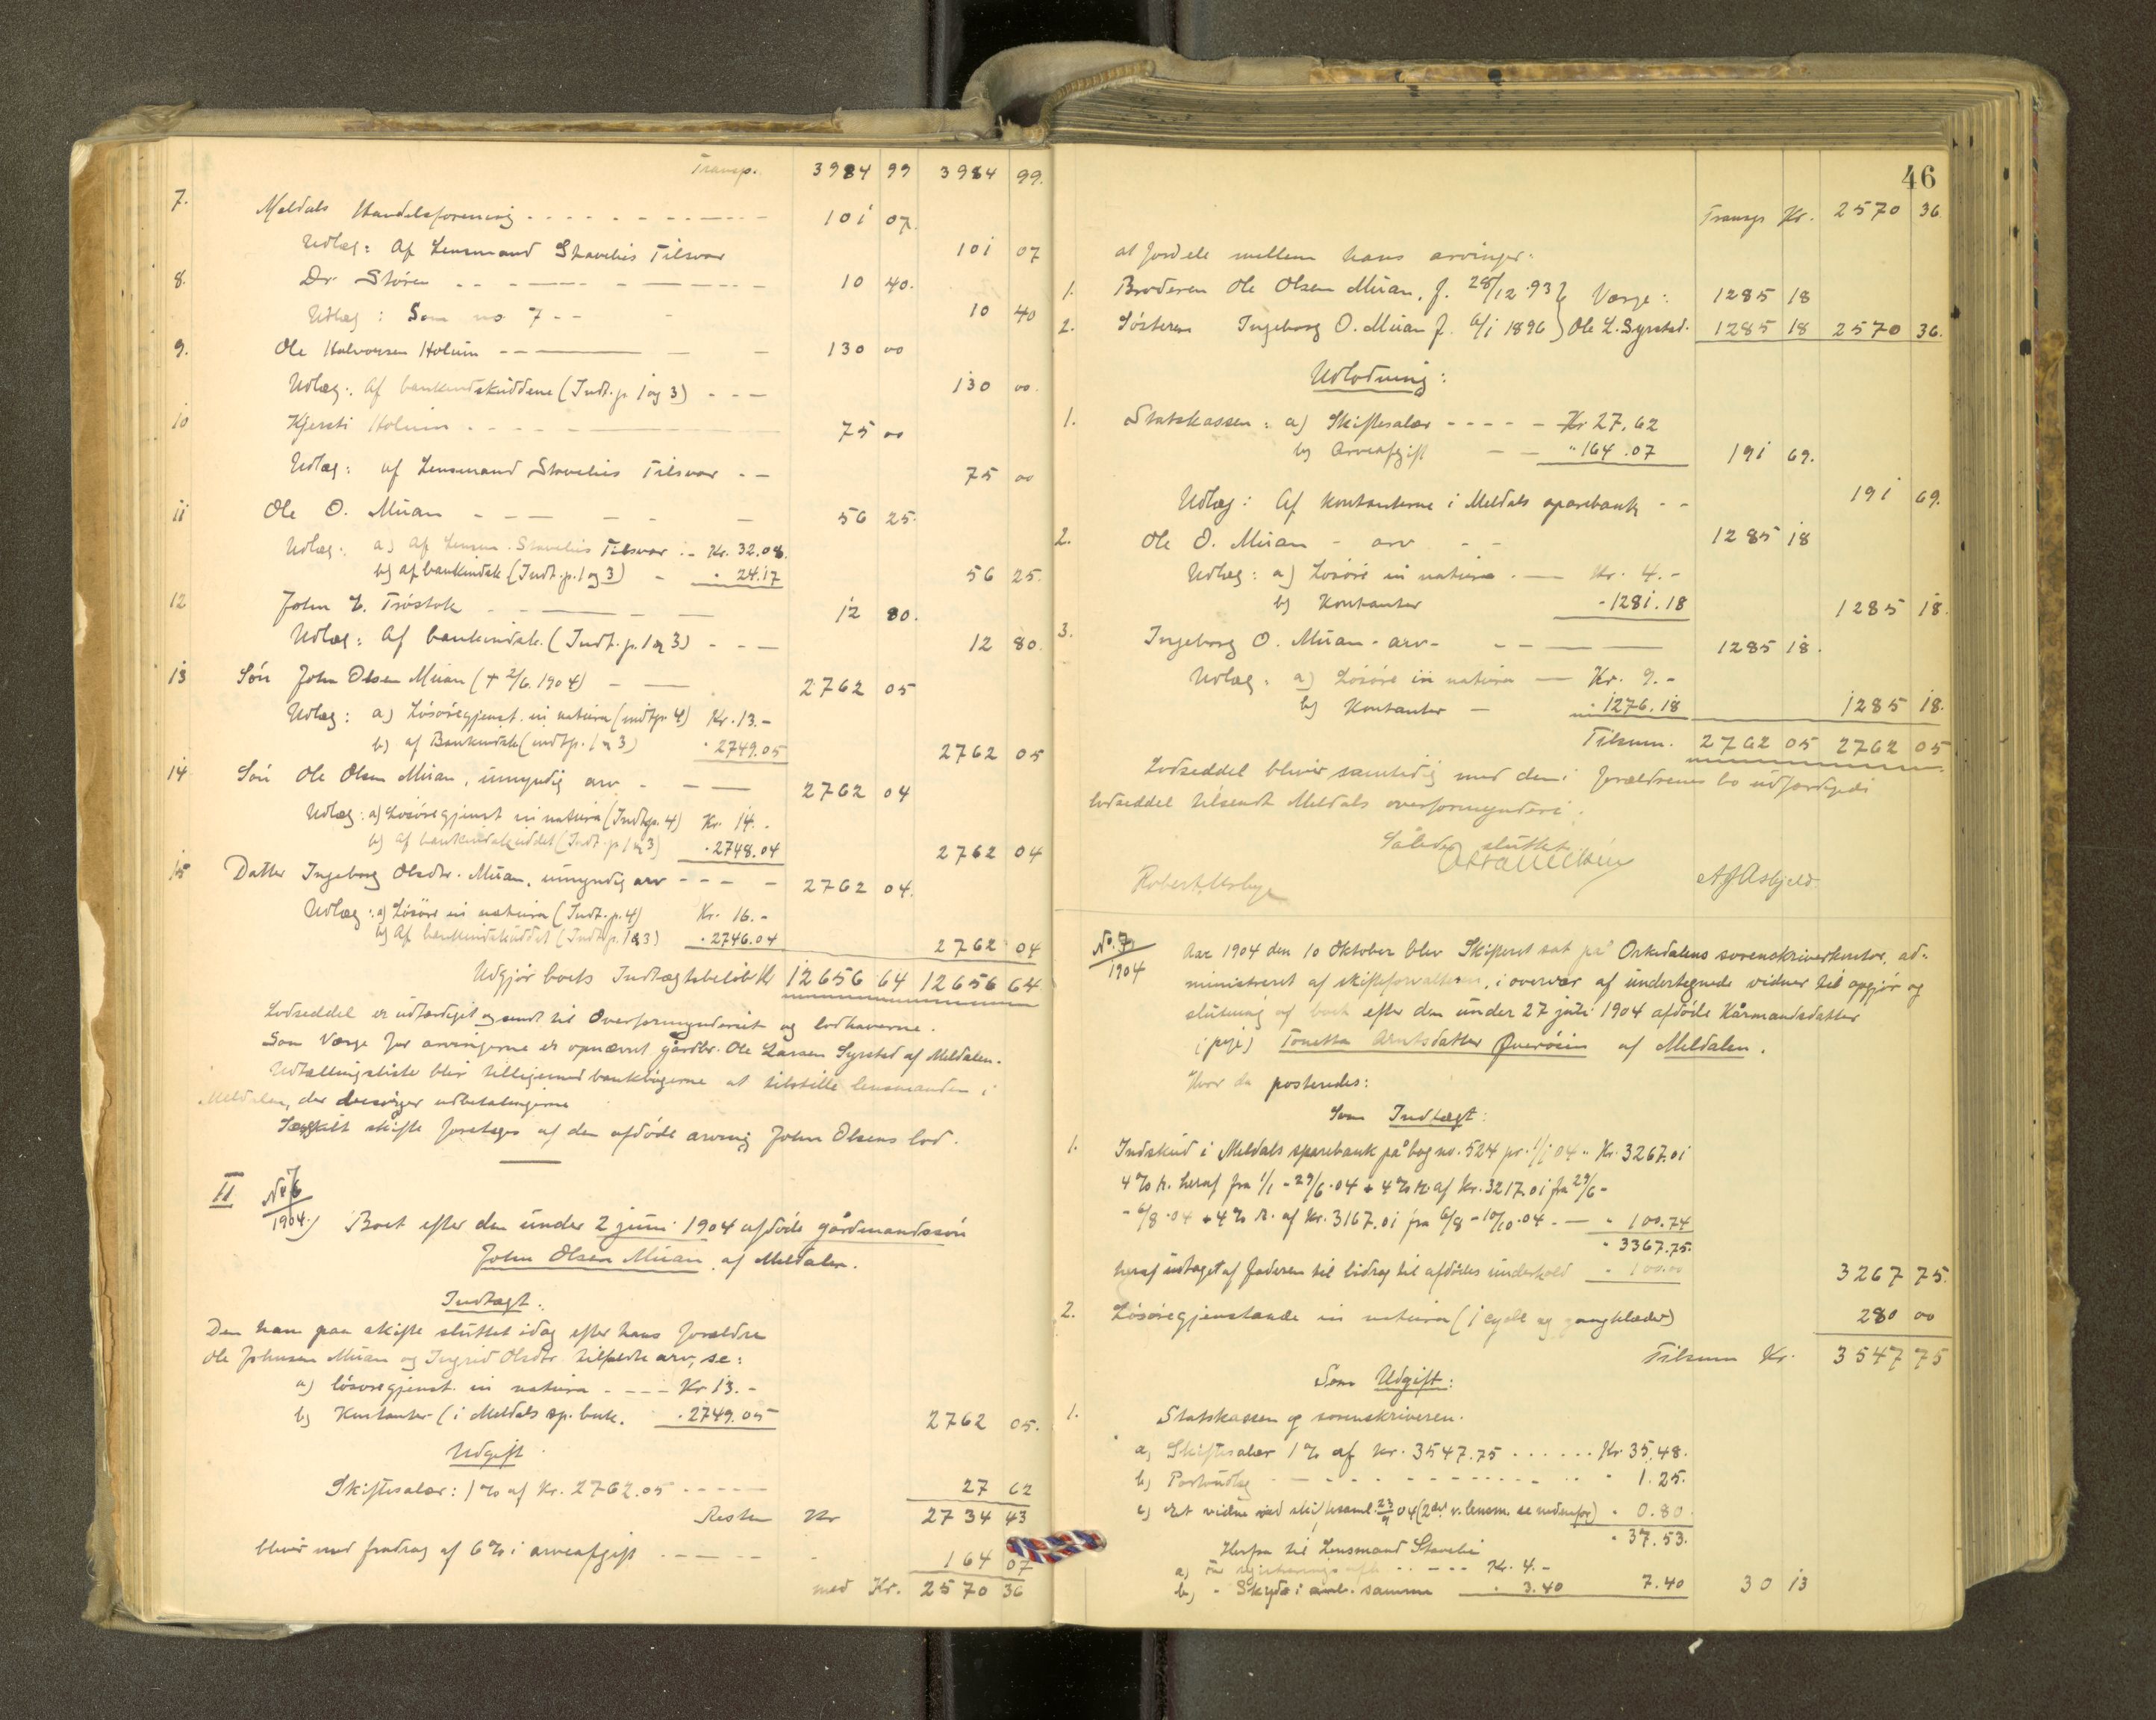 Transp. 3984 99 3984 99.
7. Meldals Handelsforening - - - - 101 07.
Udlæg: Af Lensmand Stavelies Tilsvar 101 07
8. Dr Stören - - - - 10 40.
Udlæg: Som no 7 - - - 10 40
9. Ole Halvorsen Holum - - - 130 00
Udlæg: Af bankindskuddene (Indt. p. 1 og 3) - - - 130 00.
10 Kjersti Holum - - - - 75 00
Udlæg: af Lensmand Stavelies Tilsvar - - 75 00
11 Ole O. Muan - - - - - 56 25.
Udlæg: a) af Lensm. Stavelies Tilsvar - Kr. 32.08.
b) af bankindsk (Indt. p. 1 og 3) - " 24.17 56 25.
12 John L. Tröstok - - - 12 80.
Udlæg: Af bankindsk. (Indt. p. 1 og 3) - - - 12 80.
13 Sön John Olsen Muan (+ 2/6. 1904) - - 2762 05
Udlæg: a) Lösöregjenst. in natura (indtp. 4) Kr. 13.-
b) af Bankindsk (indtp. 1 og 3) " 2749.05 2762 05
14 Sön Ole Olsen Muan, umyndig arv - - - 2762 04
Udlæg: a) Lösöregjenst in natura (Indtp. 4) Kr. 14.-
b) af bankindskuddet (Indt. p. 1 og 3) " 2748.04 2762 04
15 Datter Ingeborg Olsdtr. Muan, umyndig arv - - - - 2762 04.
Udlæg: a) Lösöre in natura (Indt. p. 4) Kr. 16.-
b) Af bankindskuddet (Indt. p. 1 og 3) " 2746.04 2762 04
Udgjör boets Indtægtsbelöb Kr 12656 64 12656 64
Lodseddel er udfærdiget og sendt til Overformynderiet og lodhaverne.
Som Værge for arvingerne er opnævnt gårdbr. Ole Larsen Syrstad af Meldalen.
Udtællingsliste blir tilligemed bankbögerne at tilstille lensmanden i
Meldalen, der besörger udbetalingerne
Særskilt skifte foretages af den afdöde arving John Olsens lod.
II No 6/1904.) Boet efter den under 2 juni 1904 afdöde gårdmandssön
John Olsen Muan af Meldalen.
Indtægt:
Den ham paa skifte sluttet idag efter hans forældre
Ole Johnsen Muan og Ingrid Olsdtr. tilfaldte arv, se:
a) lösöregjenst. in natura - - - - Kr 13.-
b) Kontanter (i Meldals sp. bank. " 2749.05 2762 05.
Udgift.
Skiftesalær: 1% af Kr. 2762.05 - - - - - 27 62
Resten Kr 2734 43
blivir med fradrag af 6% i arveafgift - - - - - 164 07
med Kr. 2570 36
46
Transp Kr. 2570 36
at fordele mellem hans arvinger:
1. Broderen Ole Olsen Muan, f. 28/12.93 } Værge: 1285 18
2. Sösteren Ingeborg O. Muan f. 6/1 1896 } Ole L. Syrstad. 1285 18 2570 36.
Udlodning:
1. Statskassen: a) Skiftesalær - - - - - Kr 27.62
b) Arveafgift - - " 164.07 191 69.
Udlæg: Af Kontanterne i Meldals sparebank - - 191 69.
2. Ole O. Muan - arv - - 1285 18
Udlæg: a) Lösöre in natura - Kr. 4.-
b) Kontanter - 1281.18 1285 18.
3. Ingeborg O. Muan - arv - - - 1285 18.
Udlæg: a) Lösöre in natura - Kr. 9.-
b) Kontanter - " 1276.18 1285 18.
Tilsum. 2762 05 2762 05
Lodseddel blivir samtidig med den i forældrenes bo udfærdigede
lodseddel tilsendt Meldals overformynderi.
Således sluttet
Robert Usbye A J Asbjeld
No. 7/1904 Aar 1904 den 10 Oktober blev Skifteret sat på Orkedalens sorenskriverkontor, ad-
ministreret af skifteforvalteren, i overvær af undertegnede vidner til opgjör og
slutning af boet efter den under 27 juli 1904 afdöde Kårmandsdatter
(pige) Tonetta Arntsdatter Överösin af Meldalen.
Hvor da posteredes:
Som Indtægt:
1. Indskud i Meldals sparebank på bog no. 524 pr. 1/1 04 " Kr. 3267.01
4% R. heraf fra 1/1 - 29/6.04 + 4% R af Kr. 3217.01 fra 29/6 -
- 6/8.04 + 4% R. af Kr. 3167.01 fra 6/8 - 10/10.04 - - " 100.74
" 3367.75.
heraf udtaget af faderen til bidrag til afdödes underhold " 100.00 3267 75.
2. Lösöregjenstande in natura (1 cycle og gangklæder) 280 00
Tilsum Kr. 3547 75
Som Udgift:
1. Statskassen og sorenskriveren.
a) Skiftesalær 1% af Kr. 3547.75 . . . . . . Kr. 35.48.
b) Portoudlæg - - - - - " 1.25.
c) Et vidne ved skiftesaml. 23/9 04 (2det v. lensm. se nedenfor) " 0.80
" 37.53.
Herfra til Lensmand Stavelie
a) For registrerings - - - - Kr. 4.-
b) " Skyds i anl. samme " 3.40 7.40 30 13